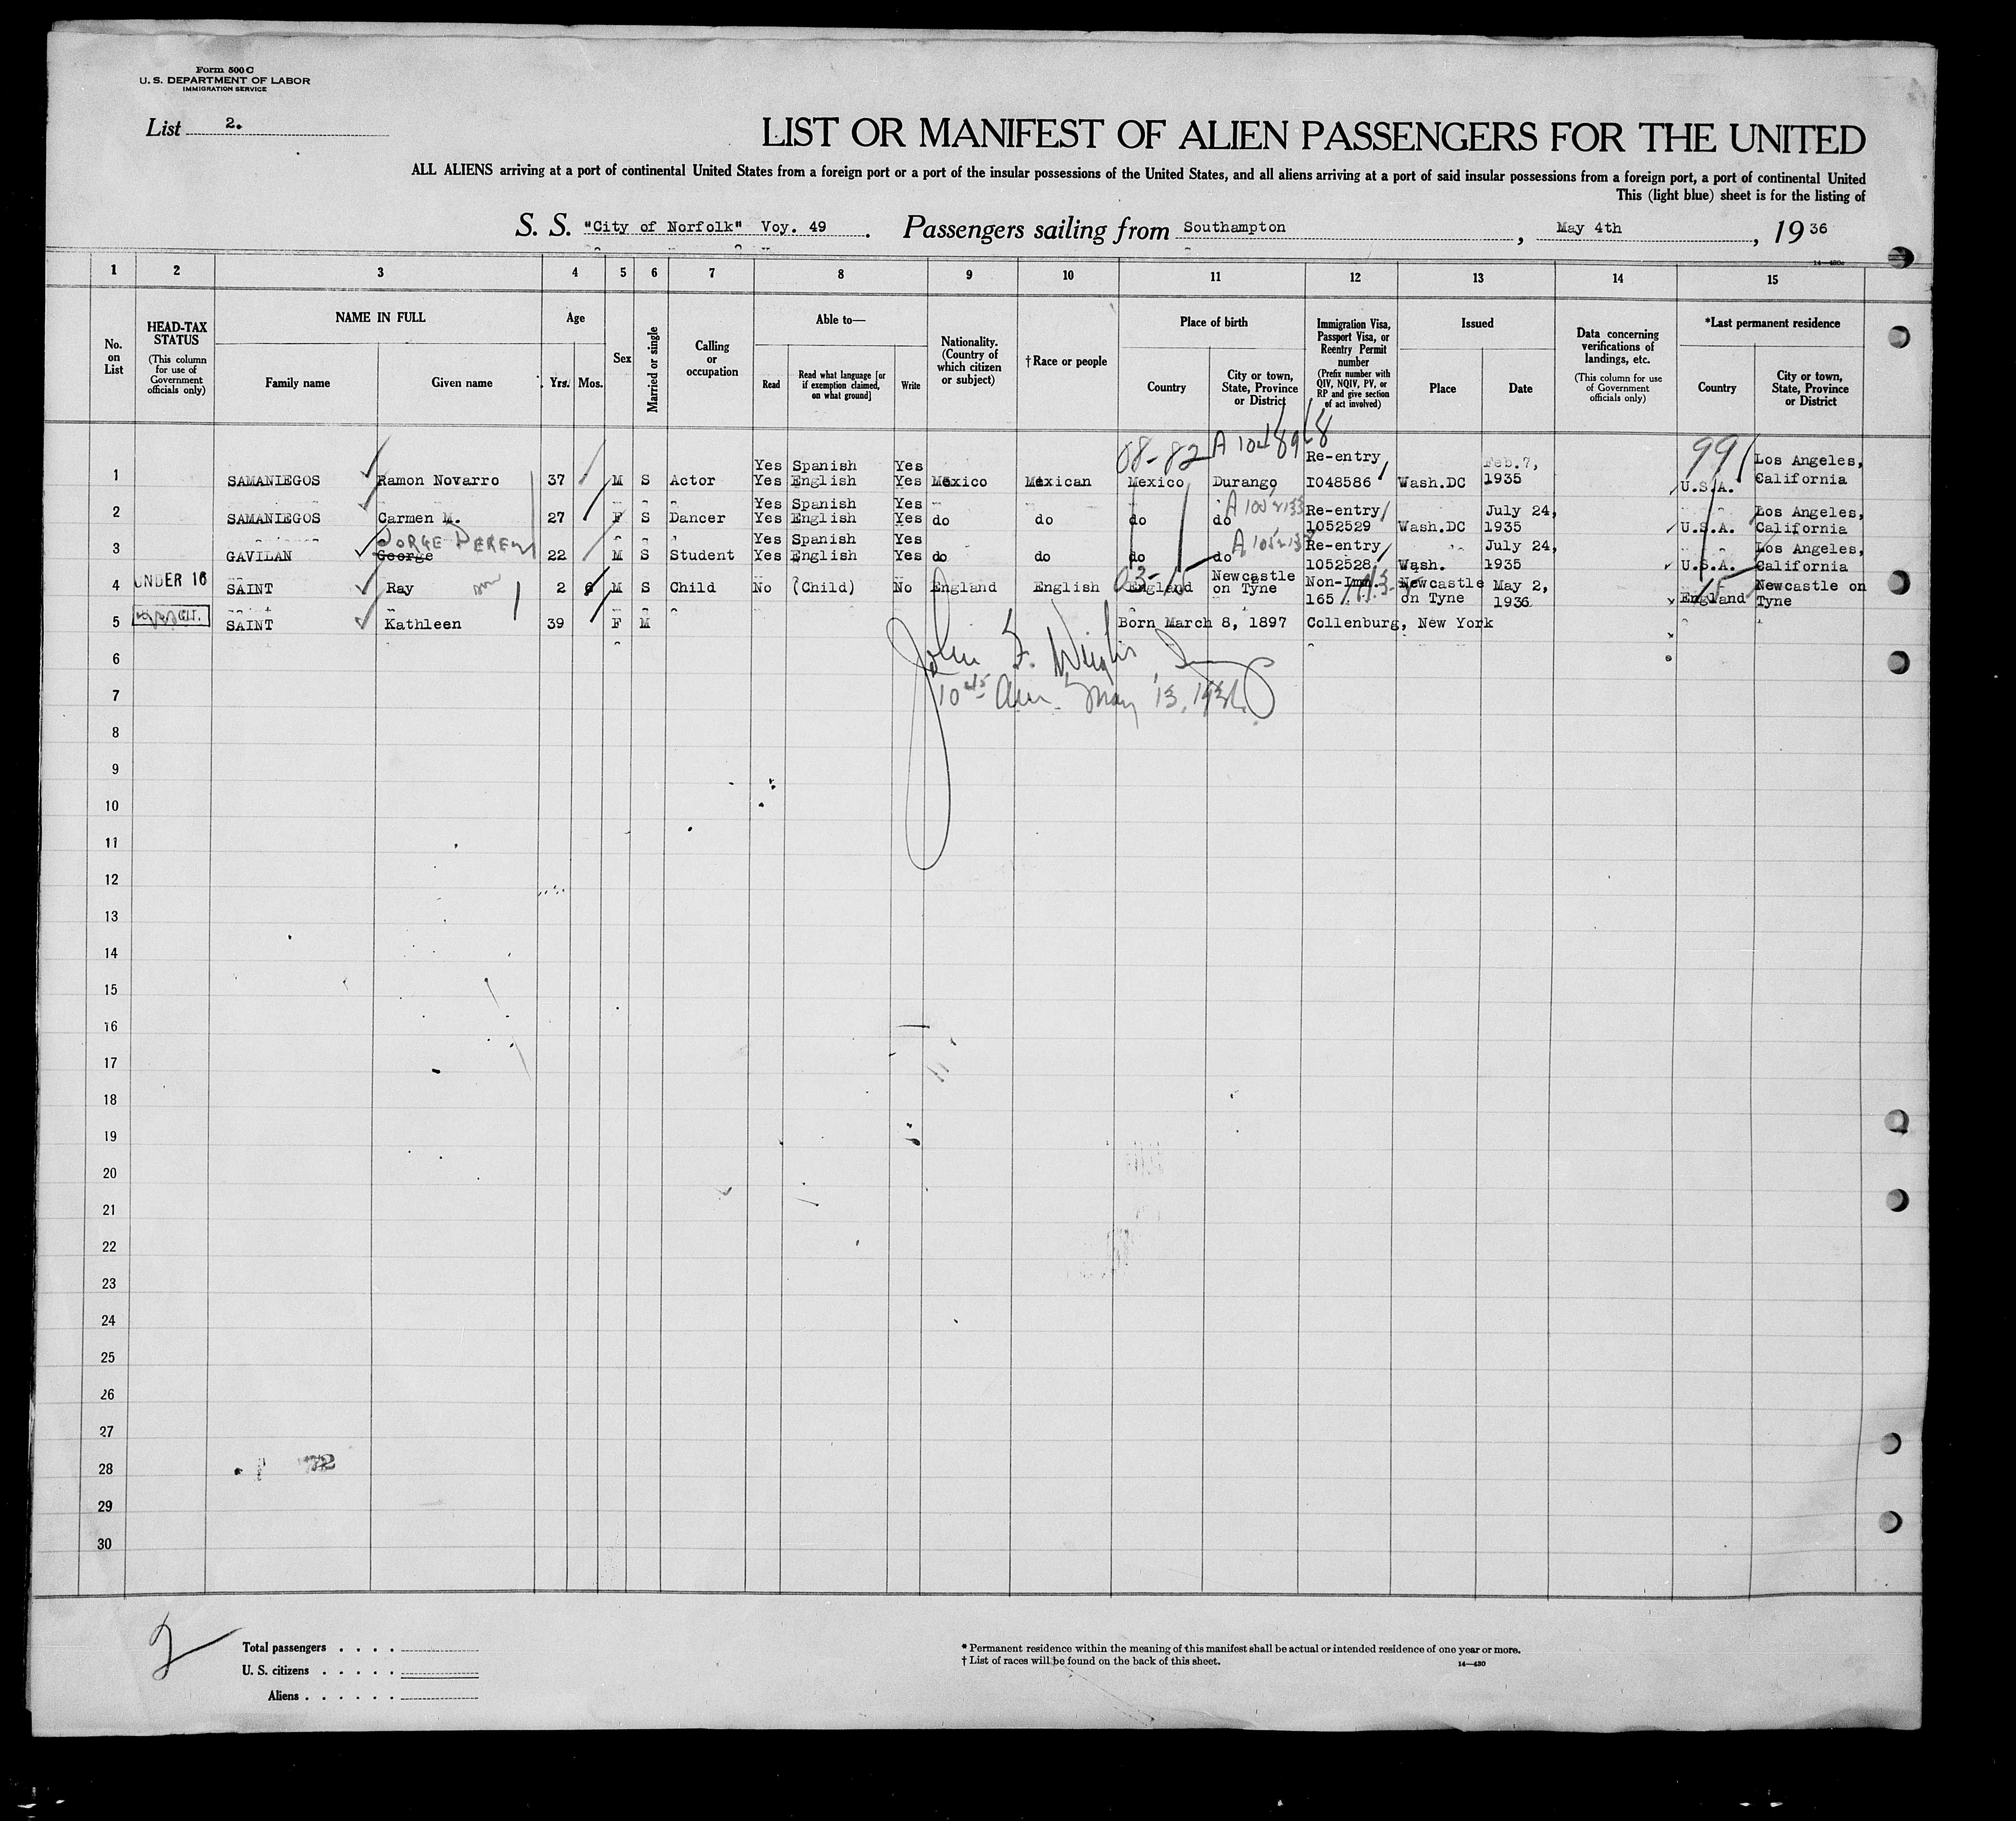 Form 500 C
U. S. DEPARTMENT OF LABOR
IMMIGRATION SERVICE
List 2.
LIST OR MANIFEST OF ALIEN PASSENGERS FOR THE UNITED
ALL ALIENS arriving at a port of continental United States from a foreign port or a port of the insular possessions of the United States, and all aliens arriving at a port of said insular possessions from a foreign port, a port of continental United
This (light blue) sheet is for the listing of
S. S. "City of Norfolk" Voy. 49 . Passengers sailing from Southampton , May 4th , 19 36
14—430c
1 2 3 4 5 6 7 8 9 10 11 12 13 14 15
No. on List
HEAD-TAX STATUS (This column for use of Government officials only)
NAME IN FULL Family name Given name
Age Yrs. Mos.
Sex
Married or single
Calling or occupation
Able to— Read Read what language [or if exemption claimed, on what ground] Write
Nationality. (Country of which citizen or subject)
†Race or people
Place of birth Country City or town, State, Province or District
Immigration Visa, Passport Visa, or Reentry Permit number (Prefix number with QIV, NQIV, PV, or RP and give section of act involved)
Issued Place Date
Data concerning verifications of landings, etc. (This column for use of Government officials only)
*Last permanent residence Country City or town, State, Province or District
08-82 99
1 SAMANIEGOS Ramon Novarro 37 M S Actor Yes Spanish Yes Yes English Yes Mexico Mexican Mexico Durango Re-entry I048586 Wash.DC Feb.7, 1935 U.S.A. Los Angeles, California
2 SAMANIEGOS Carmen M. 27 F S Dancer Yes Spanish Yes Yes English Yes do do do do Re-entry 1052529 Wash.DC July 24, 1935 U.S.A. Los Angeles, California
JORGE PEREZ
3 GAVILAN George 22 M S Student Yes Spanish Yes Yes English Yes do do do do Re-entry 1052528 Wash. July 24, 1935 U.S.A. Los Angeles, California
4 UNDER 16 SAINT Ray 2 6 M S Child No (Child) No England English England Newcastle on Tyne Non-Imm. 165 Newcastle on Tyne May 2, 1936 England Newcastle on Tyne
5 SAINT Kathleen 39 F M Born March 8, 1897 Collenburg, New York
6
John F.
7 10 45 am. May 13, 1936.
8
9
10
11
12
13
14
15
16
17
18
19
20
21
22
23
24
25
26
27
28
29
30
2
Total passengers . . . .
U. S. citizens . . . . .
Aliens . . . . . .
* Permanent residence within the meaning of this manifest shall be actual or intended residence of one year or more.
† List of races will be found on the back of this sheet.
14—430